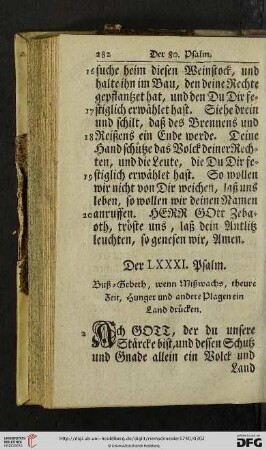 282 Der 80. Psalm.
16 suche heim diesen Weinstock, und
halte ihn im Bau, den deine Rechte
gepflantzet hat, und den Du Dir fe-
17 stiglich erwählet hast. Siehe drein
und schilt, daß des Brennens und
18 Reißens ein Ende werde. Deine
Hand schütze das Volck deiner Rech-
ten, und die Leute, die Du Dir fe-
19 stiglich erwählet hast. So wollen
wir nicht von Dir weichen, laß uns
leben, so wollen wir deinen Namen
20 anruffen. HERR GOtt Zeba-
oth, tröste uns, laß dein Antlitz
leuchten, so genesen wir, Amen.
Der LXXXI. Psalm.
Buß-Gebeth, wenn Mißwachs, theure
Zeit, Hunger und andere Plagen ein
Land drücken.
2 Ach GOTT, der du unsere
Stärcke bist, und dessen Schutz
und Gnade allein ein Volck und
Land
UNIVERSITÄTS-
BIBLIOTHEK
HEIDELBERG